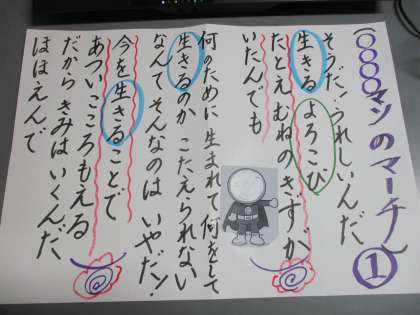 (○○○○マンのマーチ)①
そうだ!うれしいんだ
生きるよろこび
たとえむねのきずが
いたんでも
何のために生まれて何をして
生きるのかこたえられない
なんてそんなのはいやだ!
今を生きることで
あついこころもえる
だからきみはいくんだ
ほほえんで